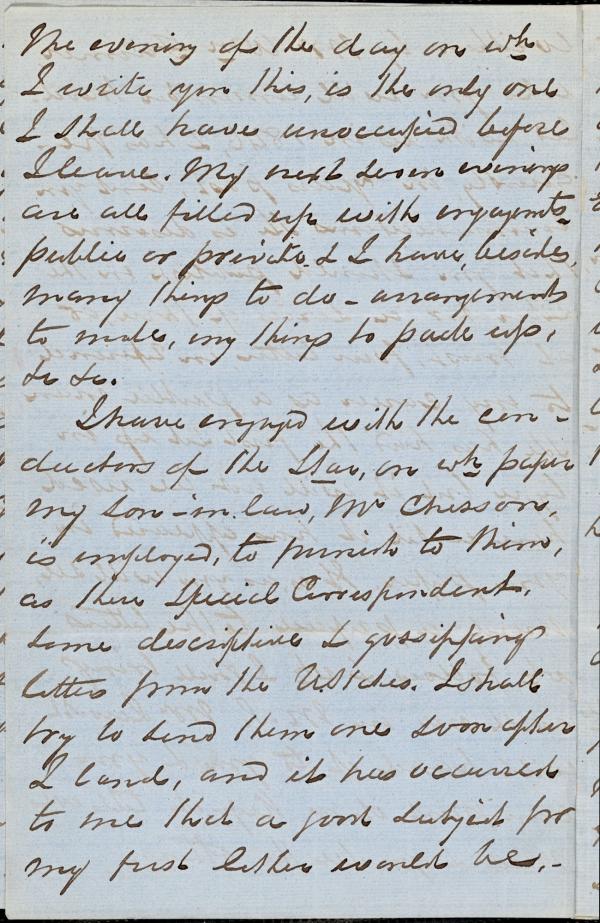 The evening of the day on wh
I write you this, is the only one
I shall have unoccupied before
I leave. My next seven evenings
are all filled up with engagemts
public or private & I have, besides,
many things to do – arrangements
to make, my things to pack up,
&c &c.
I have engaged with the con-
ductors of the Star, on wh paper
my Son-in-law, Mr Chesson,
is employed, to furnish to them,
as their Special Correspondent,
some descriptive & gossipping
letters from the UStates. I shall
try to send them one soon after
I land, and it has occurred
to me that a good subject for
my first letter would be,-